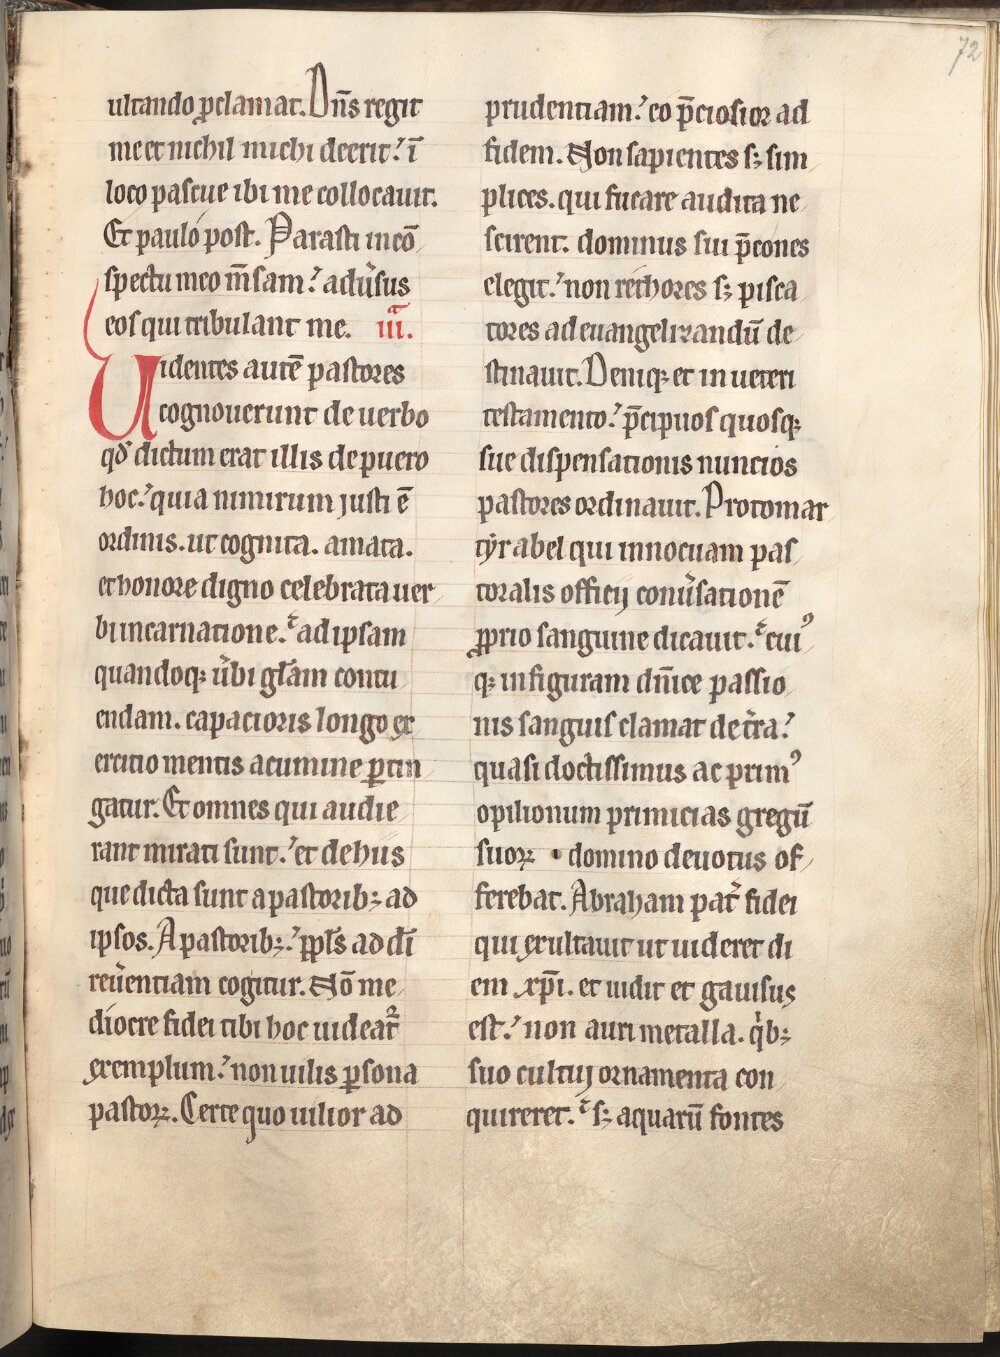 72
ultando ꝓclamat. Dn̄s regit
me et nichil michi deerit.ʼ ī
loco pascue ibi me collocauit.
Et paulo post. Parasti in cō
spectu meo m̄sam.ʼ adu̓sus
eos qui tribulant me. iiia.
Uidentes autē pastores
cognouerunt de uerbo
qd̓ dictum erat illis de puero
hoc.ʼ quia nimirum justi ē
ordinis. ut cognita. amata.
et honore digno celebrata uer
bi incarnatione.ʼ ad ipsam
quandoqꝫ u̓bi gl̄am contu
endam. capacioris longo ex
ercitio mentis acumine ꝑtin
gatur. Et omnes qui audie
rant mirati sunt.ʼ et de hiis
que dicta sunt a pastoribꝫ ad
ipsos. A pastoribꝫ.ʼ pp̄ls ad dī
reu̓entiam cogitur. Nō me
diocre fidei tibi hoc uideat᷑
exemplum.ʼ non uilis ꝑsona
pastoꝝ. Certe quo uilior ad
prudentiam.ʼ eo p̄ciosior ad
fidem. Non sapientes sꝫ sim
plices. qui fucare audita ne
scirent. dominus sui p̄cones
elegit.ʼ non rethores sꝫ pisca
tores ad euangelizandū de
stinauit. Deniqꝫ et in ueteri
testamento.ʼ p̄cipuos quosqꝫ
sue dispensationis nuncios
pastores ordinauit. Protomar
tẏr abel qui innocuam pas
toralis officij conu̓sationē
ꝓprio sanguine dicauit.ʼ cuiꝰ
qꝫ in figuram dn̄ice passio
nis sanguis clamat de t̓ra.ʼ
quasi doctissimus ac primꝰ
opilionum primicias gregū
suoꝝ domino deuotus of
ferebat. Abraham pat̓ fidei
qui exultauit ut uideret di
em xp̄i. et uidit et gauisus
est.ʼ non auri metalla. qͥbꝫ
suo cultuj ornamenta con
quireret.ʼ sꝫ aquarū fontes